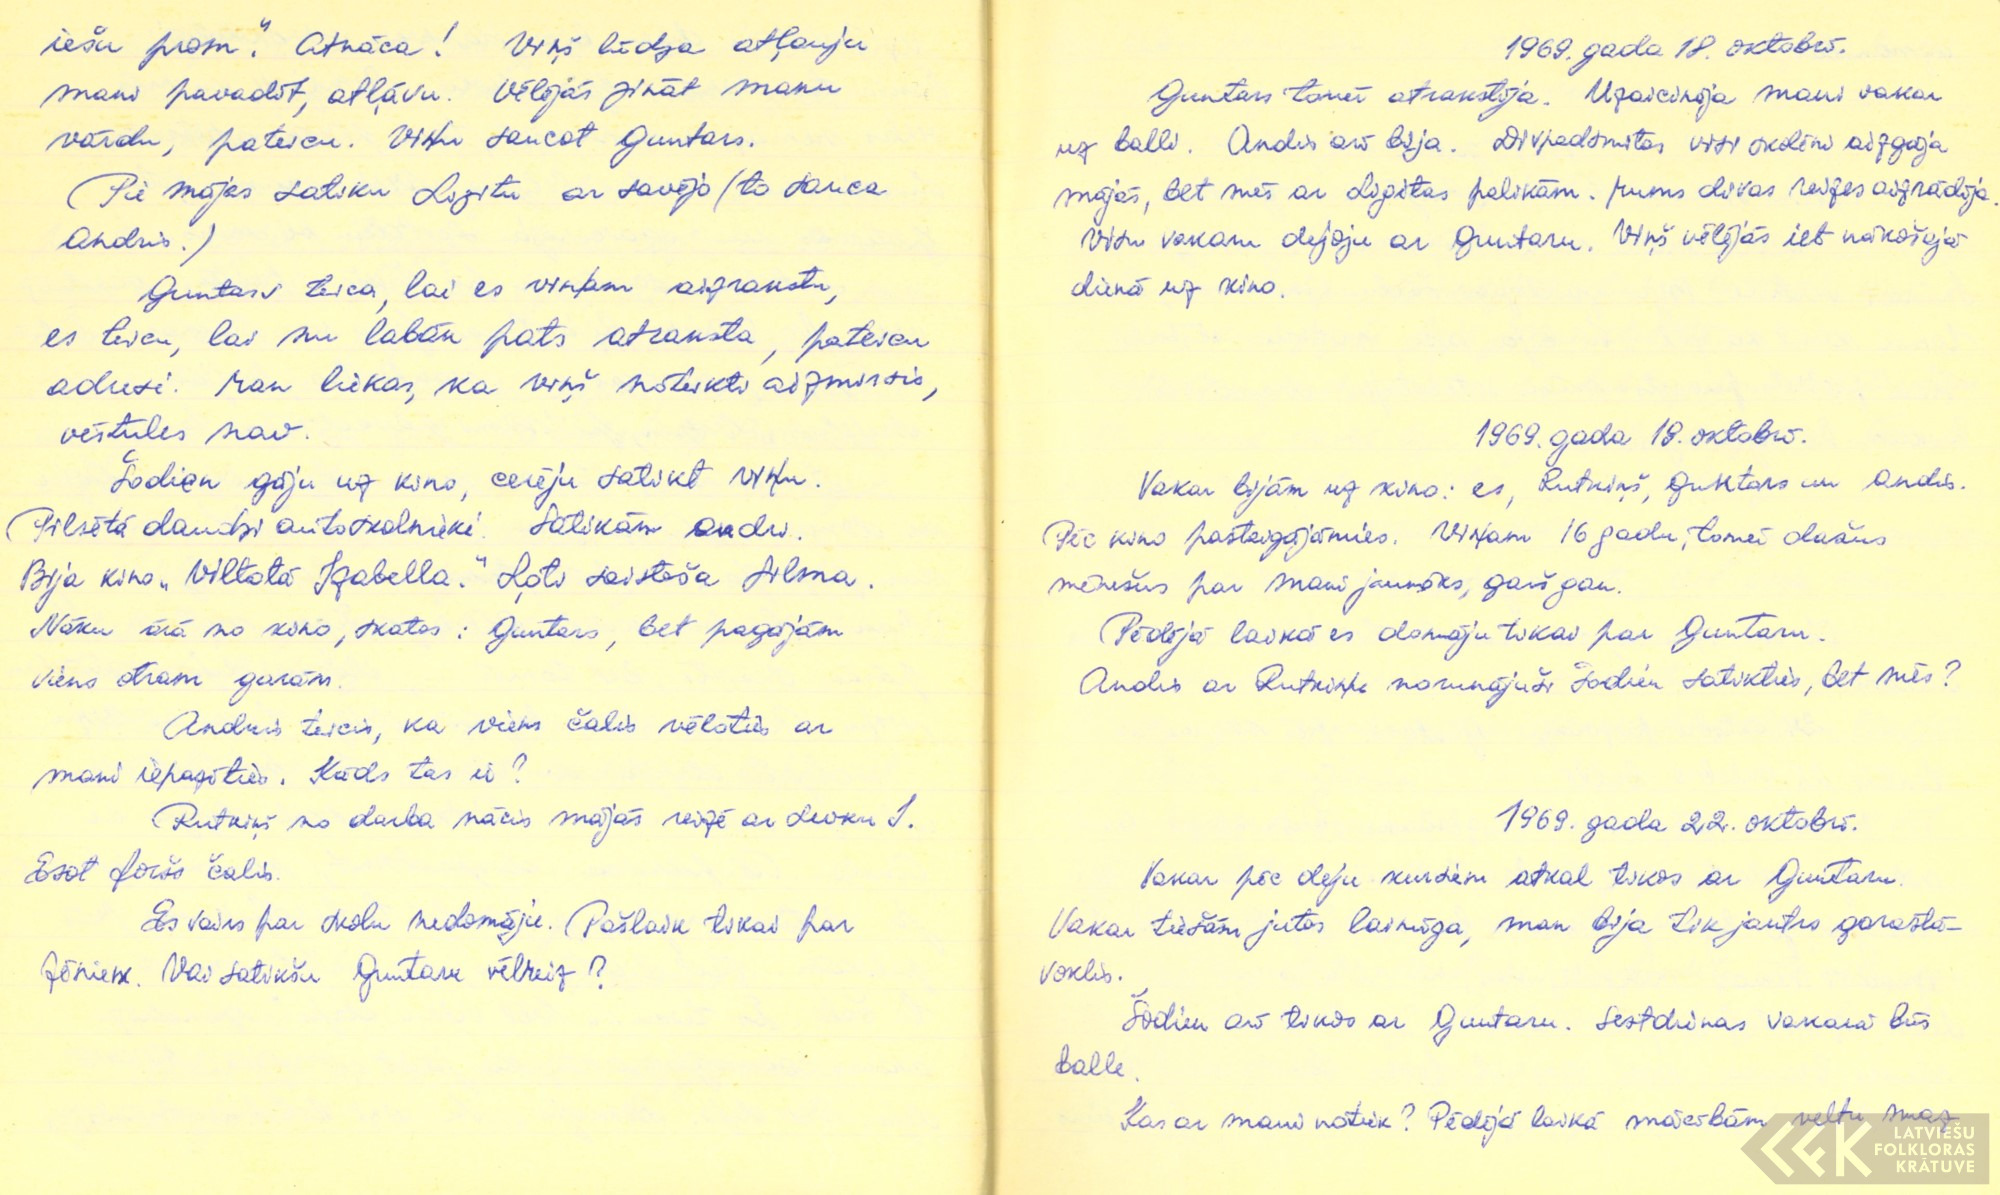 iešu prom." Atnāca! Viņš lūdza atļauju
mani pavadīt, atļāvu. Vēlējās zināt manu
vārdu, pateicu. Viņu saucot Guntars.
Pie mājas satiku Ligitu ar savējo (to sauca
Andris.)
Guntars teica, lai es viņam aizrakstu,
es teicu, lai nu labāk pats atraksta, pateicu
adresi. Man liekas, ka viņš noteikti aizmirsis,
vēstules nav.
Šodien gāju uz kino, cerēju satikt viņu.
Pilsētā daudzi autoskolnieki. Satikām Andri.
Bija kino „Viltotā Izabella." Ļoti saistoša filma.
Nāku ārā no kino, skatos: Guntars, bet pagājām
viens otram garām.
Andris teicis, ka viens čalis vēloties ar
mani iepazīties. Kāds tas ir?
Rutkiņš no darba nācis mājās reizē ar Levku S.
Esot foršs čalis.
Es vairs par skolu nedomāju. Pašlaik tikai par
zēniem. Vai satikšu Guntaru vēlreiz?
1969. gada 18. oktobrī.
Guntars tomēr atrakstīja. Uzaicināja mani vakar
uz balli. Andris arī bija. Divpadsmitos visi skolēni aizgāja
mājās, bet mēs ar Ligitas palikām. Mums divas reizes aizrādīja.
Visu vakaru dejoju ar Guntaru. Viņš vēlējās iet nākošajā
dienā uz kino.
1969. gada 19. oktobrī.
Vakar bijām uz kino: es, Rutkiņš, Guntars un Andris.
Pēc kino pastaigājāmies. Viņam 16 gadu, tomēr dažus
mēnešus par mani jaunāks, garš gan.
Pēdējā laikā es domāju tikai par Guntaru.
Andris ar Rutkiņu norunājuši šodien satikties, bet mēs?
1969. gada 22. oktobrī.
Vakar pēc deju kursiem atkal tikos ar Guntaru.
Vakar tiešām jutos laimīga, man bija tik jautrs garastā-
voklis.
Šodien arī tikos ar Guntaru. Sestdienas vakarā būs
balle.
Kas ar mani notiek? Pēdējā laikā mācībām veltu maz
LATVIEŠU
FOLKLORAS
KRĀTUVE